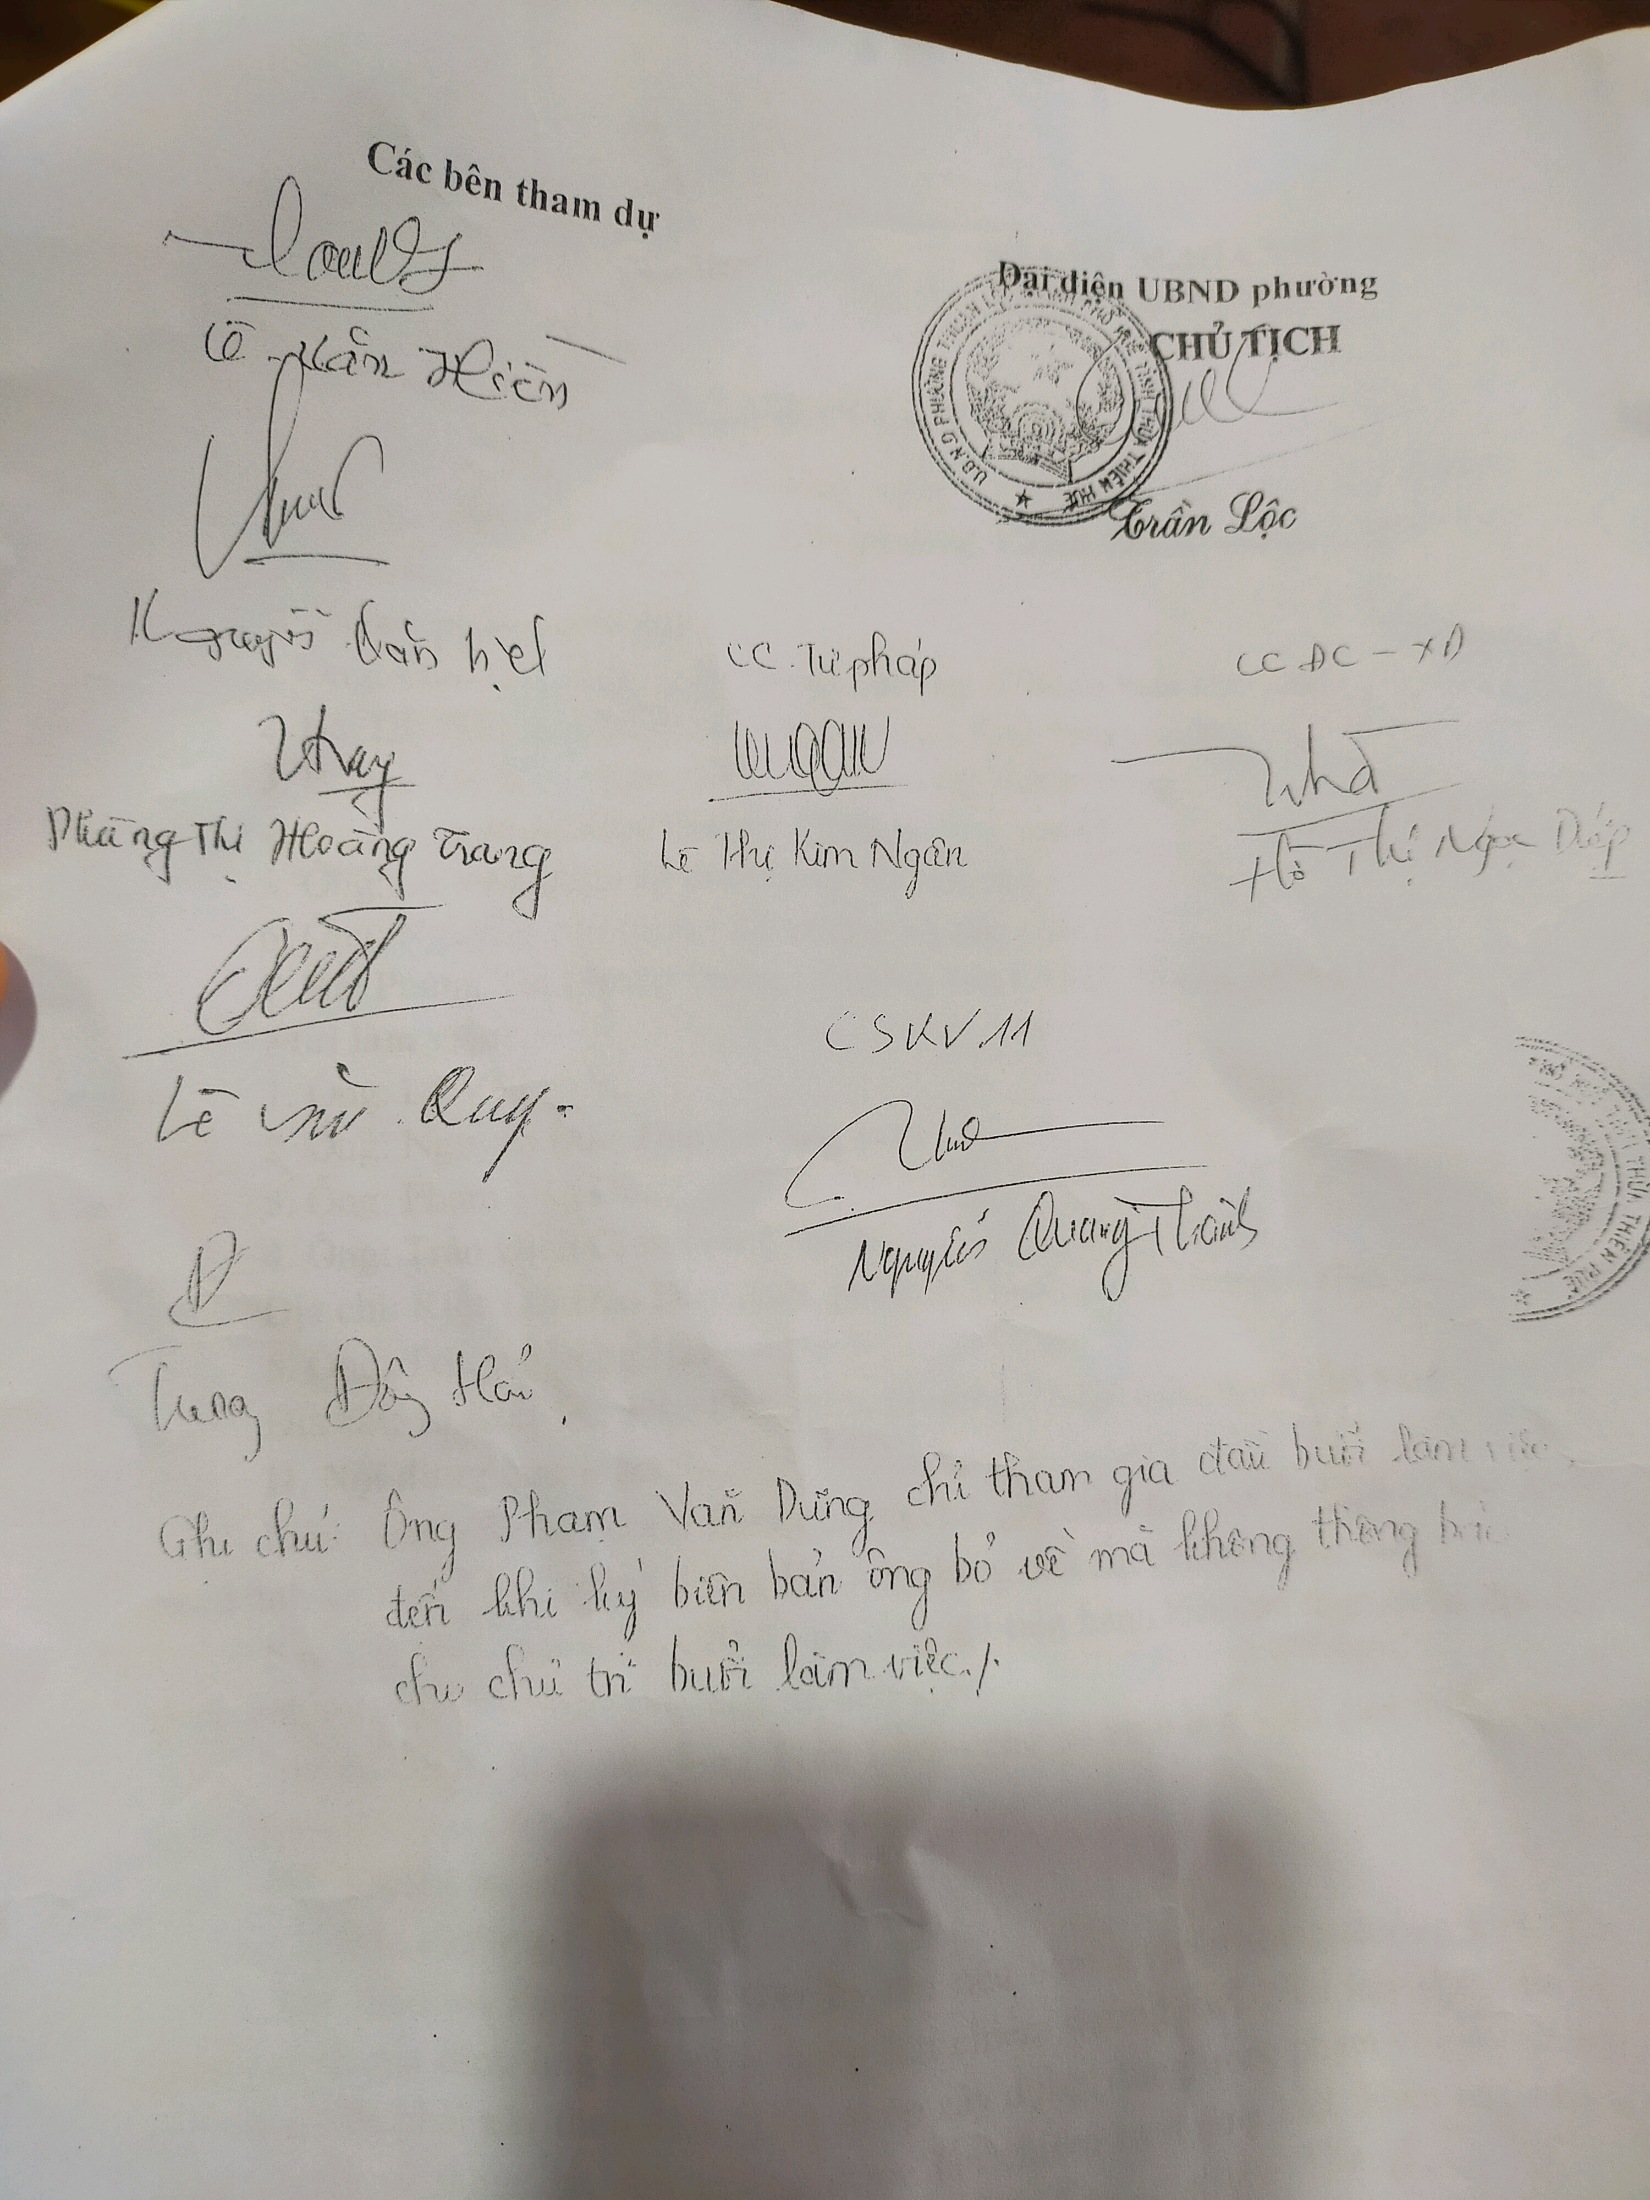 Các bên tham dự
Đại diện UBND phường
CHỦ TỊCH
U.B.N.D PHƯỜNG THUẬN LỘC TỈNH THỪA THIÊN HUẾ
Trần Lộc
Lê Văn Hiền
Nguyễn Văn Việt
CC. Tư pháp
CC ĐC - XD
Phùng Thị Hoàng Trang
Lê Thị Kim Ngân
Hồ Thị Ngọc Diệp
CSKV 11
Lê Quy
Nguyễn Quang Thành
THỪA THIÊN HUẾ
Ghi chú: Ông Phạm Văn Dũng chỉ tham gia đầu buổi làm việc,
đến khi ký biên bản ông bỏ về mà không thông báo
cho chủ trì buổi làm việc./.